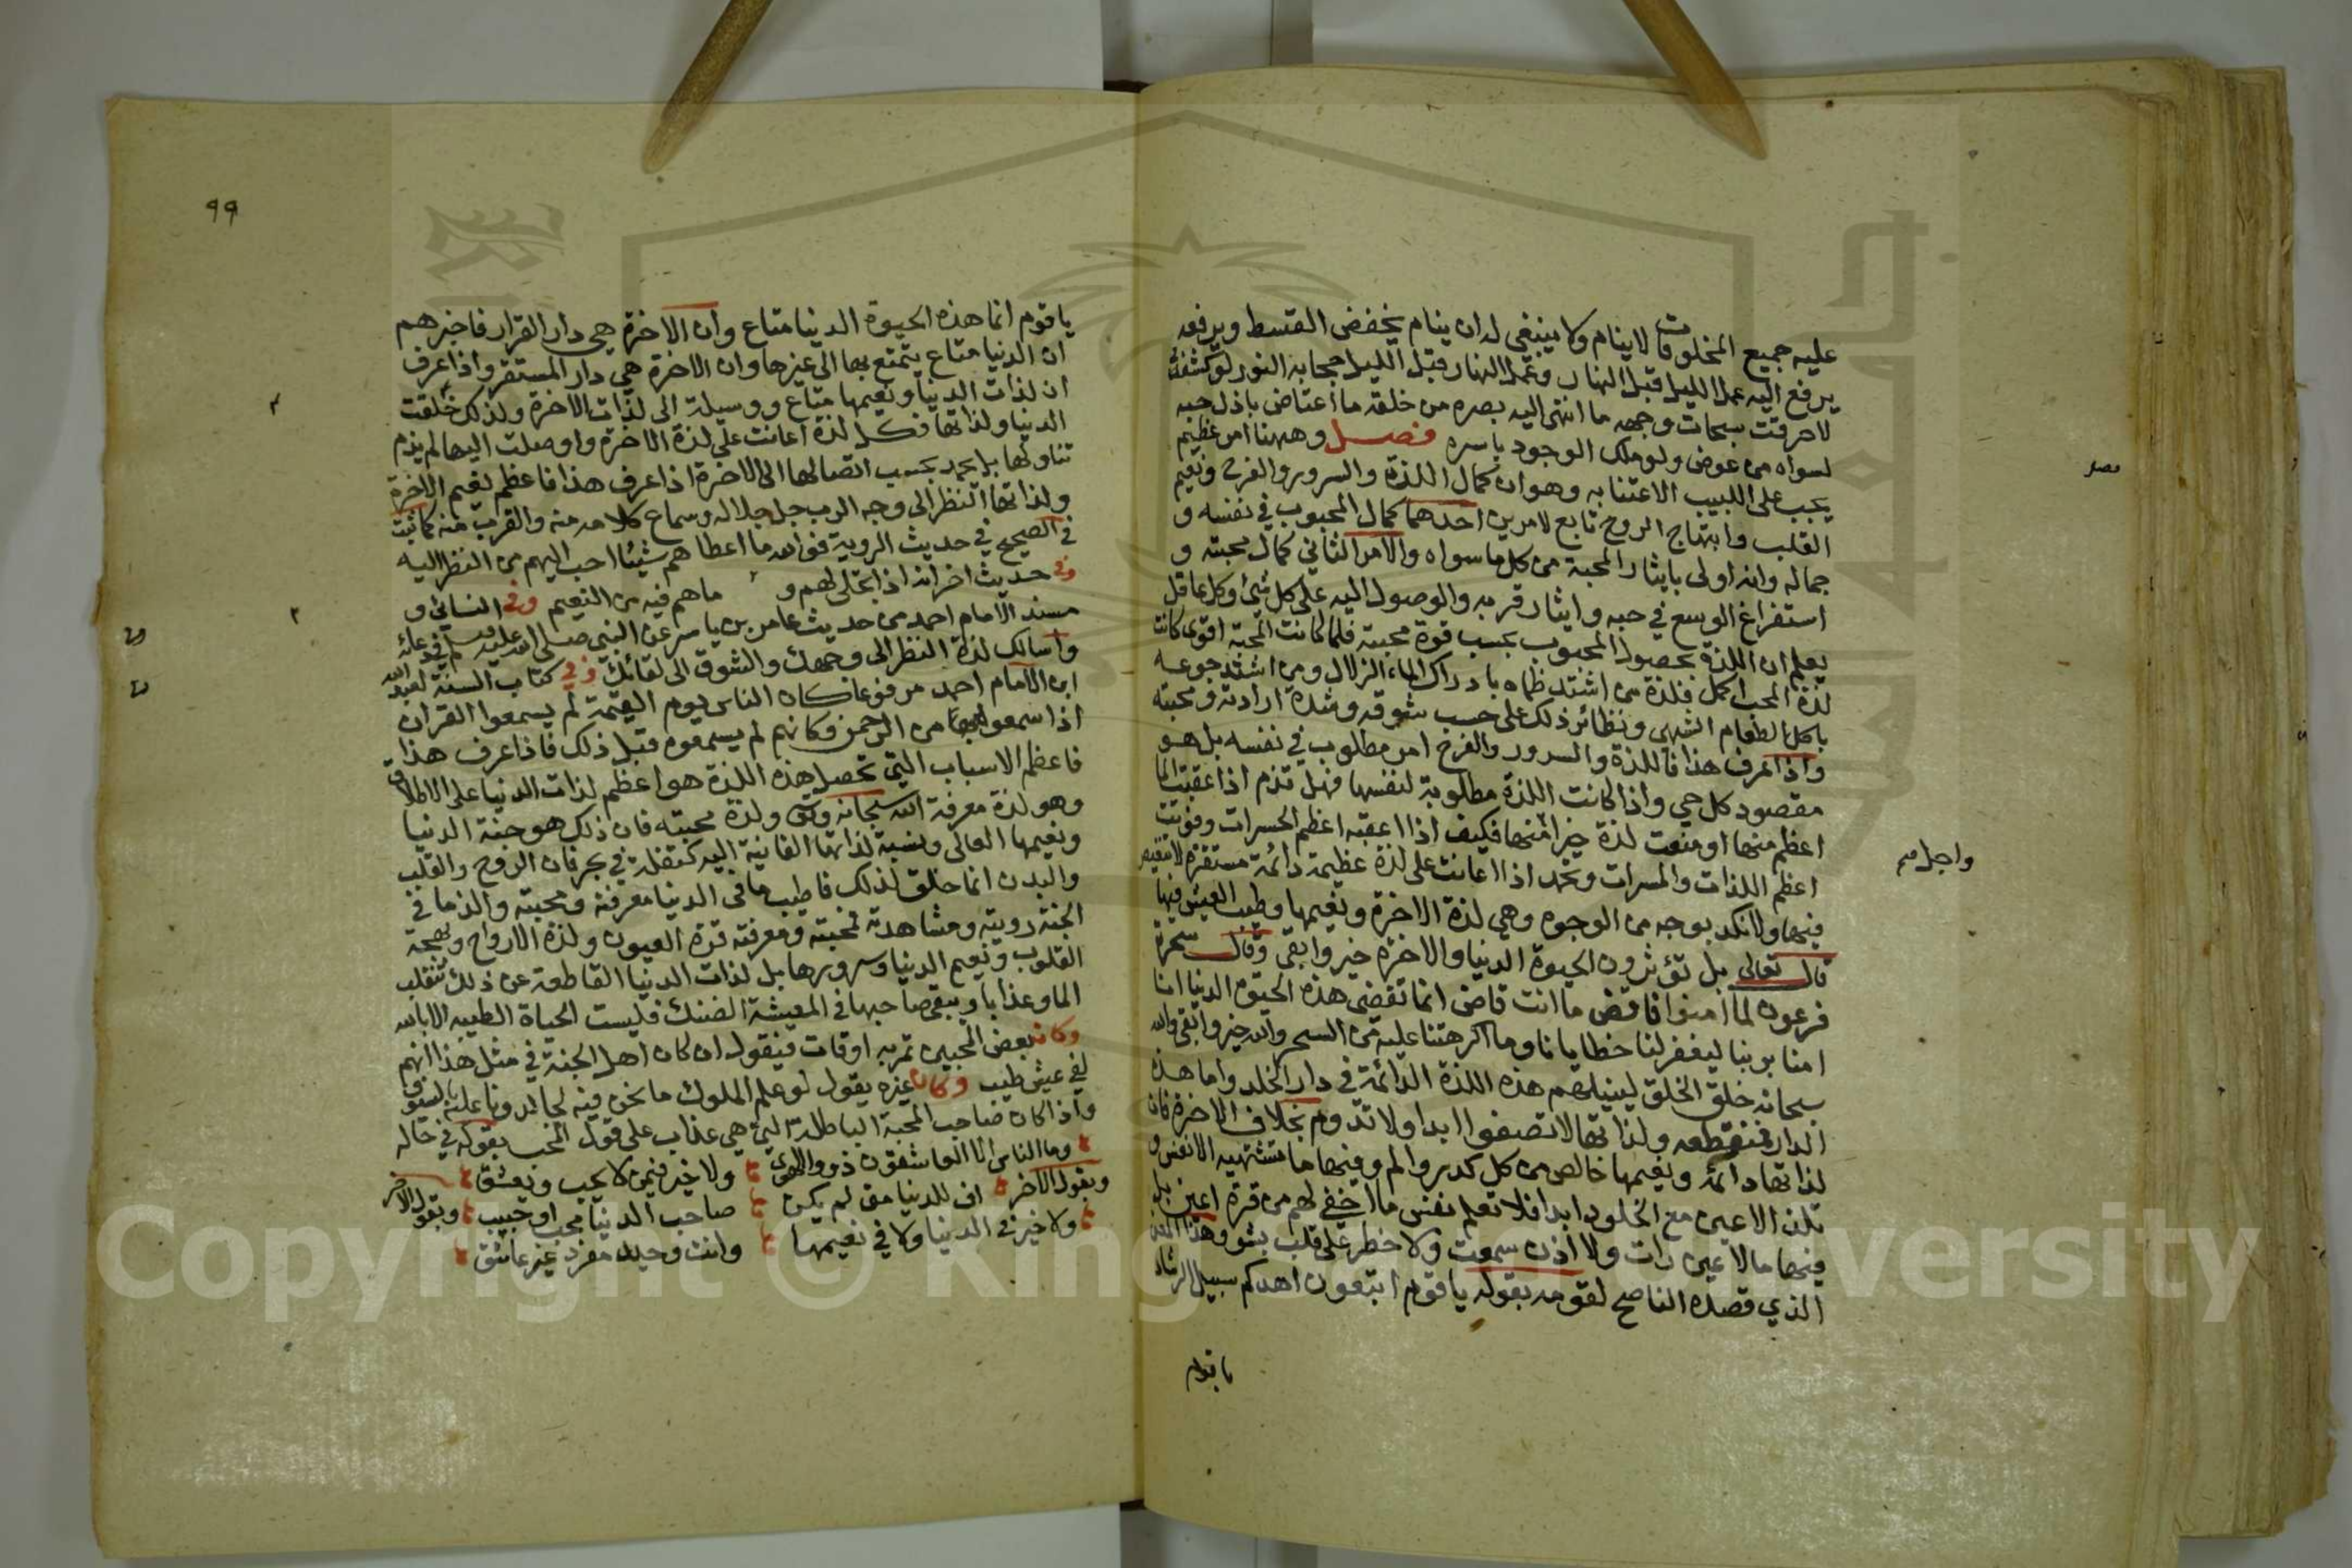 عليه جميع المخلوقات لا ينام ولا ينبغي له ان ينام يخفض القسط ويرفعه
يرفع اليه عمل الليل قبل النهار وعمل النهار قبل الليل حجابه النور لو كشفه
لاحرقت سبحات وجهه ما انتهى اليه بصره من خلقه ما اعتاض باذل حبه
لسواه من عوض ولو ملك الوجود باسره فصل وههنا امر عظيم
يجب على اللبيب الاعتنا به وهو ان كمال اللذة والسرور والفرح ونعيم
القلب وابتهاج الروح تابع لامرين احدهما كمال المحبوب في نفسه و
جماله وانه اولى بايثار المحبة من كل ما سواه والامر الثاني كمال محبته و
استفراغ الوسع في حبه وايثار قربه والوصول اليه على كل شئ وكل عاقل
يعلم ان اللذة بحصول المحبوب بحسب قوة محبته فلما كانت المحبة اقوى كانت
لذة المحب اكمل فلذة من اشتد ظماه بادراك الماء الزلال ومن اشتد جوعه
باكل الطعام الشهي ونظائر ذلك على حسب شوقه وشدة ارادته ومحبته
واذا عرف هذا فاللذة والسرور والفرح امر مطلوب في نفسه بل هو
مقصود كل حي واذا كانت اللذة مطلوبة لنفسها فهل تذم اذا اعقبت الما
اعظم منها او منعت لذة خيرا منها فكيف اذا اعقبه اعظم الحسرات وفوتت
اعظم اللذات والمسرات وتحمد اذا اعانت على لذة عظيمة دائمة مستقرة لا تنغيص
فيها ولا نكد بوجه من الوجوه وهي لذة الاخرة ونعيمها وطيب العيش فيها
قال تعالى بل تؤثرون الحيوة الدنيا والاخرة خير وابقى وقال سحرة
فرعون لما امنوا فاقض ما انت قاض انما تقضي هذه الحيوة الدنيا انا
امنا بربنا ليغفر لنا خطايانا وما اكرهتنا عليه من السحر والله خير وابقى والله
سبحانه خلق الخلق لينيلهم هذه اللذة الدائمة في دار الخلد واما هذه
الدار فمنقطعه ولذاتها لا تصفوا ابدا ولا تدوم بخلاف الاخرة فان
لذاتها دائمه ونعيمها خالص من كل كدر والم وفيها ما تشتهيه الانفس و
تلذ الاعين مع الخلود ابدا فلا تعلم نفس ما اخفي لهم من قرة اعين بل
فيها ما لا عين رات ولا اذن سمعت ولا خطر على قلب بشر وهذا المعنى
الذي قصده الناصح لقومه بقوله يا قوم اتبعون اهدكم سبيل الرشاد
يا قوم
واجل مم
٩٩
يا قوم انما هذه الحيوة الدنيا متاع وان الاخرة هي دار القرار فاخبرهم
ان الدنيا متاع يتمتع بها الى غيرها وان الاخرة هي دار المستقر واذا عرف
ان لذات الدنيا ونعيمها متاع ووسيلة الى لذات الاخرة ولذلك خلقت
الدنيا ولذاتها فكل لذة اعانت على لذة الاخرة واوصلت اليها لم يذم
تناولها بل يحمد بحسب اتصالها الى الاخرة اذا عرف هذا فاعظم نعيم الاخرة
ولذاتها النظر الى وجه الرب جل جلاله وسماع كلامه منه والقرب منه كما ثبت
في الصحيح في حديث الروية فوالله ما اعطاهم شيئا احب اليهم من النظر اليه
وفي حديث اخر انه اذا تجلى لهم و ما هم فيه من النعيم وفي النسائي و
مسند الامام احمد من حديث عامر بن ياسر عن النبي صلى الله عليه وسلم في دعائه
واسالك لذة النظر الى وجهك والشوق الى لقائك وفي كتاب السنة لعبد الله
ابن الامام احمد مرفوعا كان الناس يوم القيمة لم يسمعوا القران
اذا سمعوا من الرحمن فكانهم لم يسمعوه قبل ذلك فاذا عرف هذا
فاعظم الاسباب التي تحصل هذه اللذة هو اعظم لذات الدنيا على الاطلاق
وهو لذة معرفة الله سبحانه وتعالى ولذة محبته فان ذلك هو جنة الدنيا
ونعيمها العالي ونسبة لذاتها الفانية اليه كتفلة في بحر فان الروح والقلب
والبدن انما خلق لذلك فاطيب ما في الدنيا معرفته ومحبته والذ ما في
الجنة رويته ومشاهدته فمحبته ومعرفته قرة العيون ولذة الارواح وبهجة
القلوب ونعيم الدنيا وسرورها بل لذات الدنيا القاطعة عن ذلك تنقلب
الما وعذابا ويبقى صاحبها في المعيشة الضنك فليست الحياة الطيبه الا بالله
وكان بعض المحبين تمر به اوقات فيقول ان كان اهل الجنة في مثل هذا انهم
لفي عيش طيب وكان غيره يقول لو علم الملوك ما نحن فيه لجالدونا عليه بالسيوف
واذا كان صاحب المحبة الباطلة التي هي عذاب على قول المحب يقوله في حاله
وما الناس الا العاشقون ذوو الهوى ولا خير فيمن لا يحب ويعشق
ويقول الاخر اف للدنيا متى لم يكن صاحب الدنيا محب او حبيب ويقول الاخر
ولا خير في الدنيا ولا في نعيمها وانت وحيد مفرد غير عاشق
Copyright © King Saud University